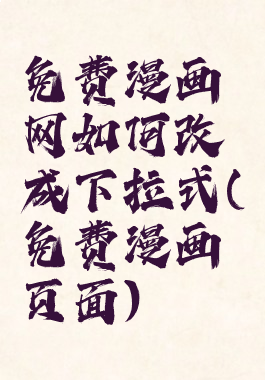 免费漫画
网如何改
成下拉式(
免费漫画
页面)